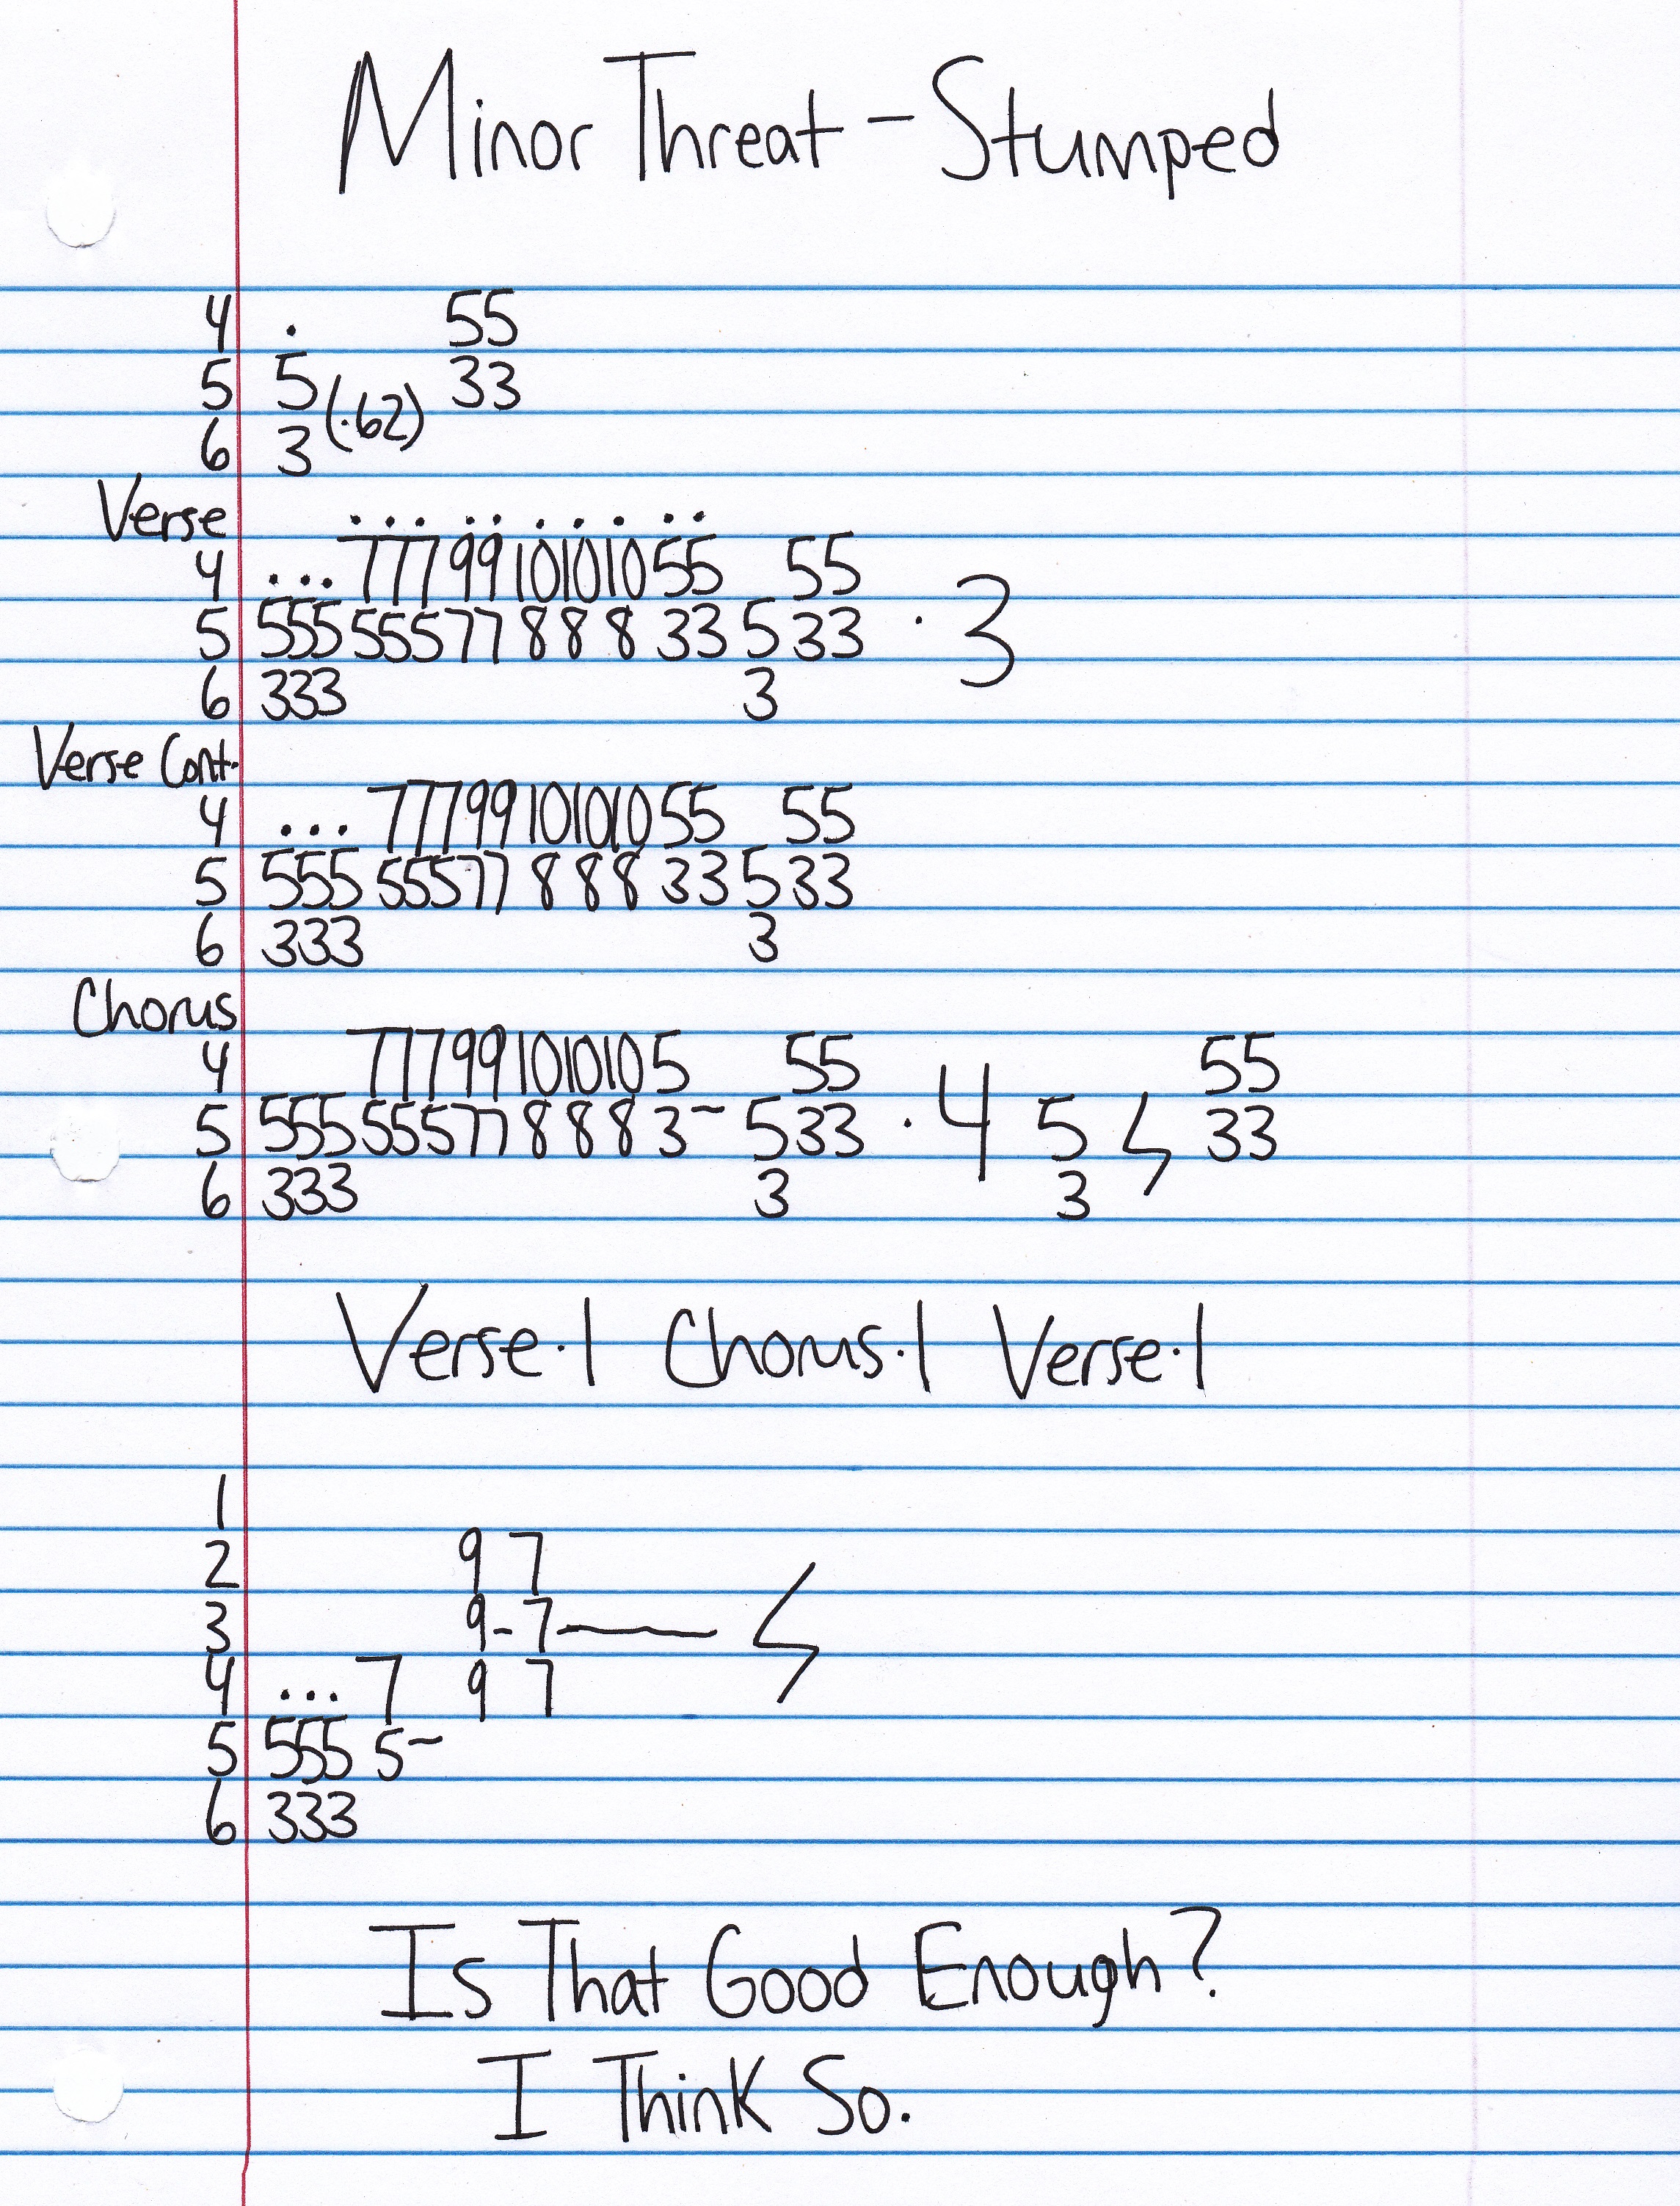 Minor Threat - Stumped
4 . 55
5 5 (.62) 33
6 3
Verse . . . . . . . . . .
4 ... 777 99 10 10 10 55 55
5 555 555 77 8 8 8 33 5 33 · 3
6 333 3
Verse Cont.
4 ... 777 99 10 10 10 55 55
5 555 555 77 8 8 8 33 5 33
6 333 3
Chorus
4 777 99 10 10 10 5 55 55
5 555 555 77 8 8 8 3~ 5 33 · 4 5 ϟ 33
6 333 3 3
Verse·1 Chorus·1 Verse·1
1
2 9 7
3 9-7— ϟ
4 ... 7 9 7
5 555 5~
6 333
Is That Good Enough?
I Think So.